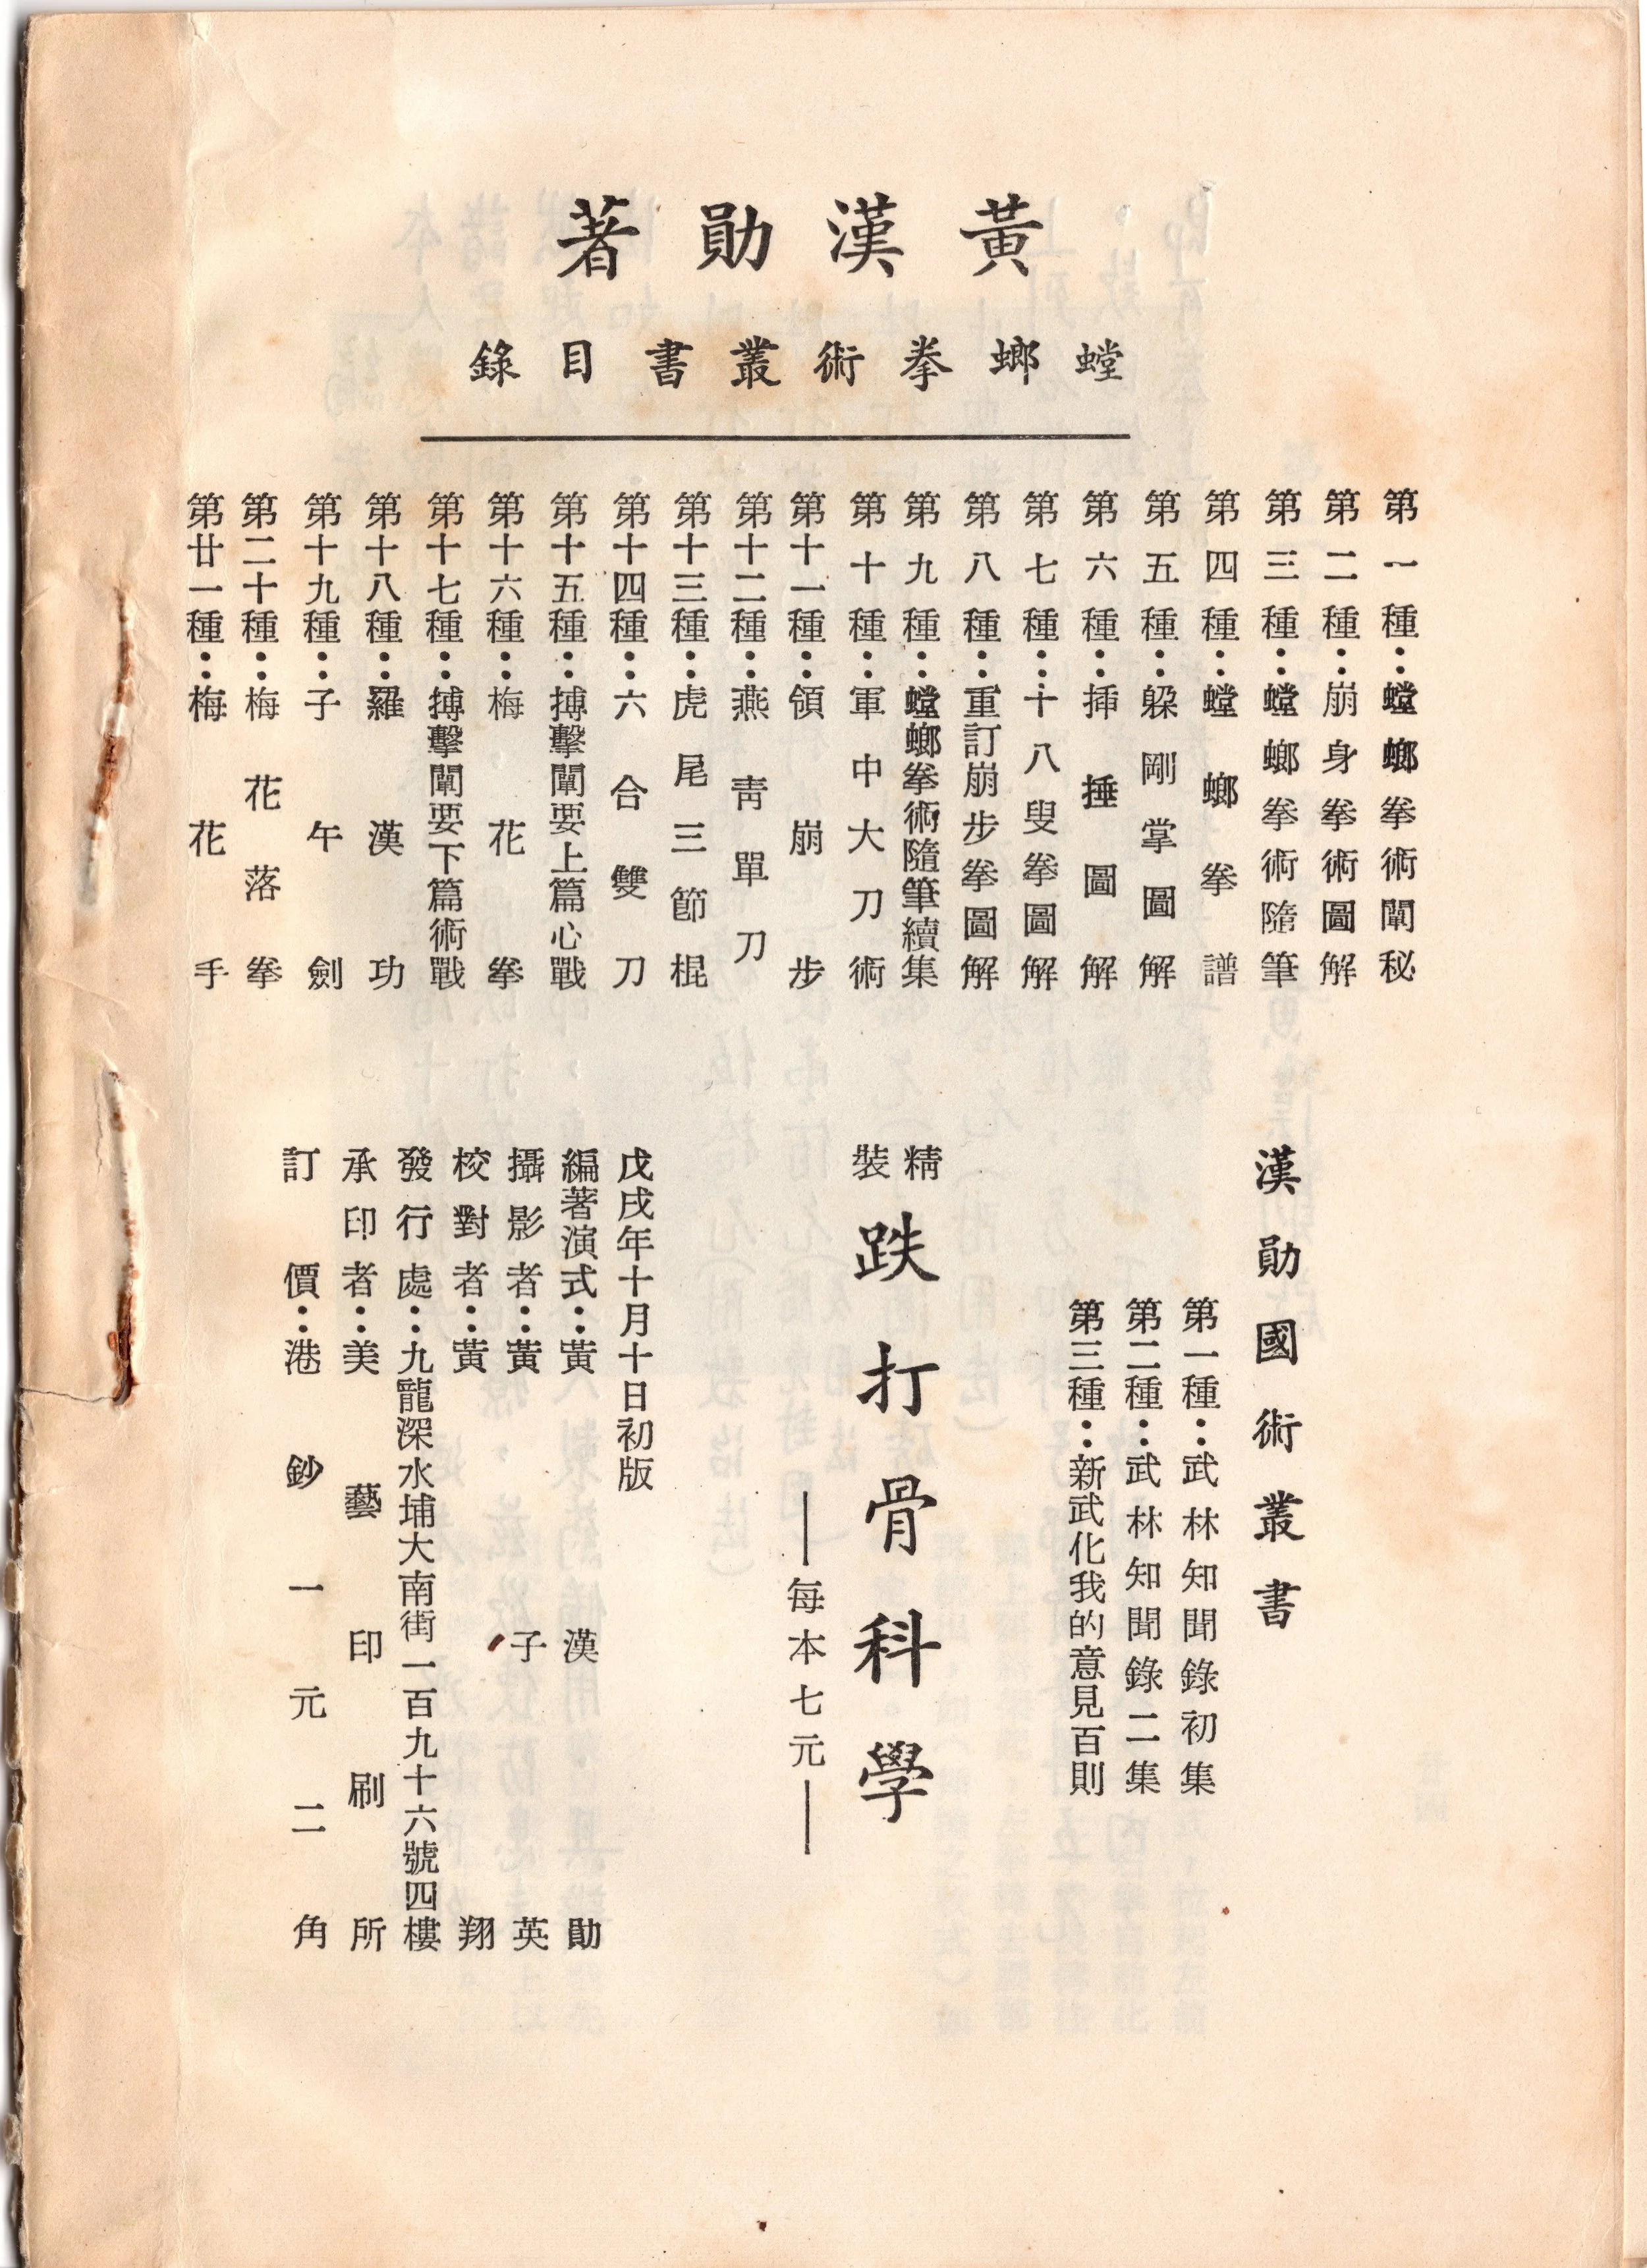 黃漢勛著
螳螂拳術叢書目錄
第一種：螳螂拳術闡秘
第二種：崩身拳術圖解
第三種：螳螂拳術隨筆
第四種：螳螂拳譜
第五種：躱剛掌圖解
第六種：揷捶圖解
第七種：十八叟拳圖解
第八種：重訂崩步拳圖解
第九種：螳螂拳術隨筆續集
第十種：軍中大刀術
第十一種：領崩步
第十二種：燕靑單刀
第十三種：虎尾三節棍
第十四種：六合雙刀
第十五種：搏擊闡要上篇心戰
第十六種：梅花拳
第十七種：搏擊闡要下篇術戰
第十八種：羅漢功
第十九種：子午劍
第二十種：梅花落拳
第廿一種：梅花手
漢勛國術叢書
第一種：武林知聞錄初集
第二種：武林知聞錄二集
第三種：新武化我的意見百則
精裝
跌打骨科學
——每本七元——
戊戌年十月十日初版
編著演式：黃漢勛
攝影者：黃子英
校對者：黃翔
發行處：九龍深水埔大南街一百九十六號四樓
承印者：美藝印刷所
訂價：港鈔一元二角